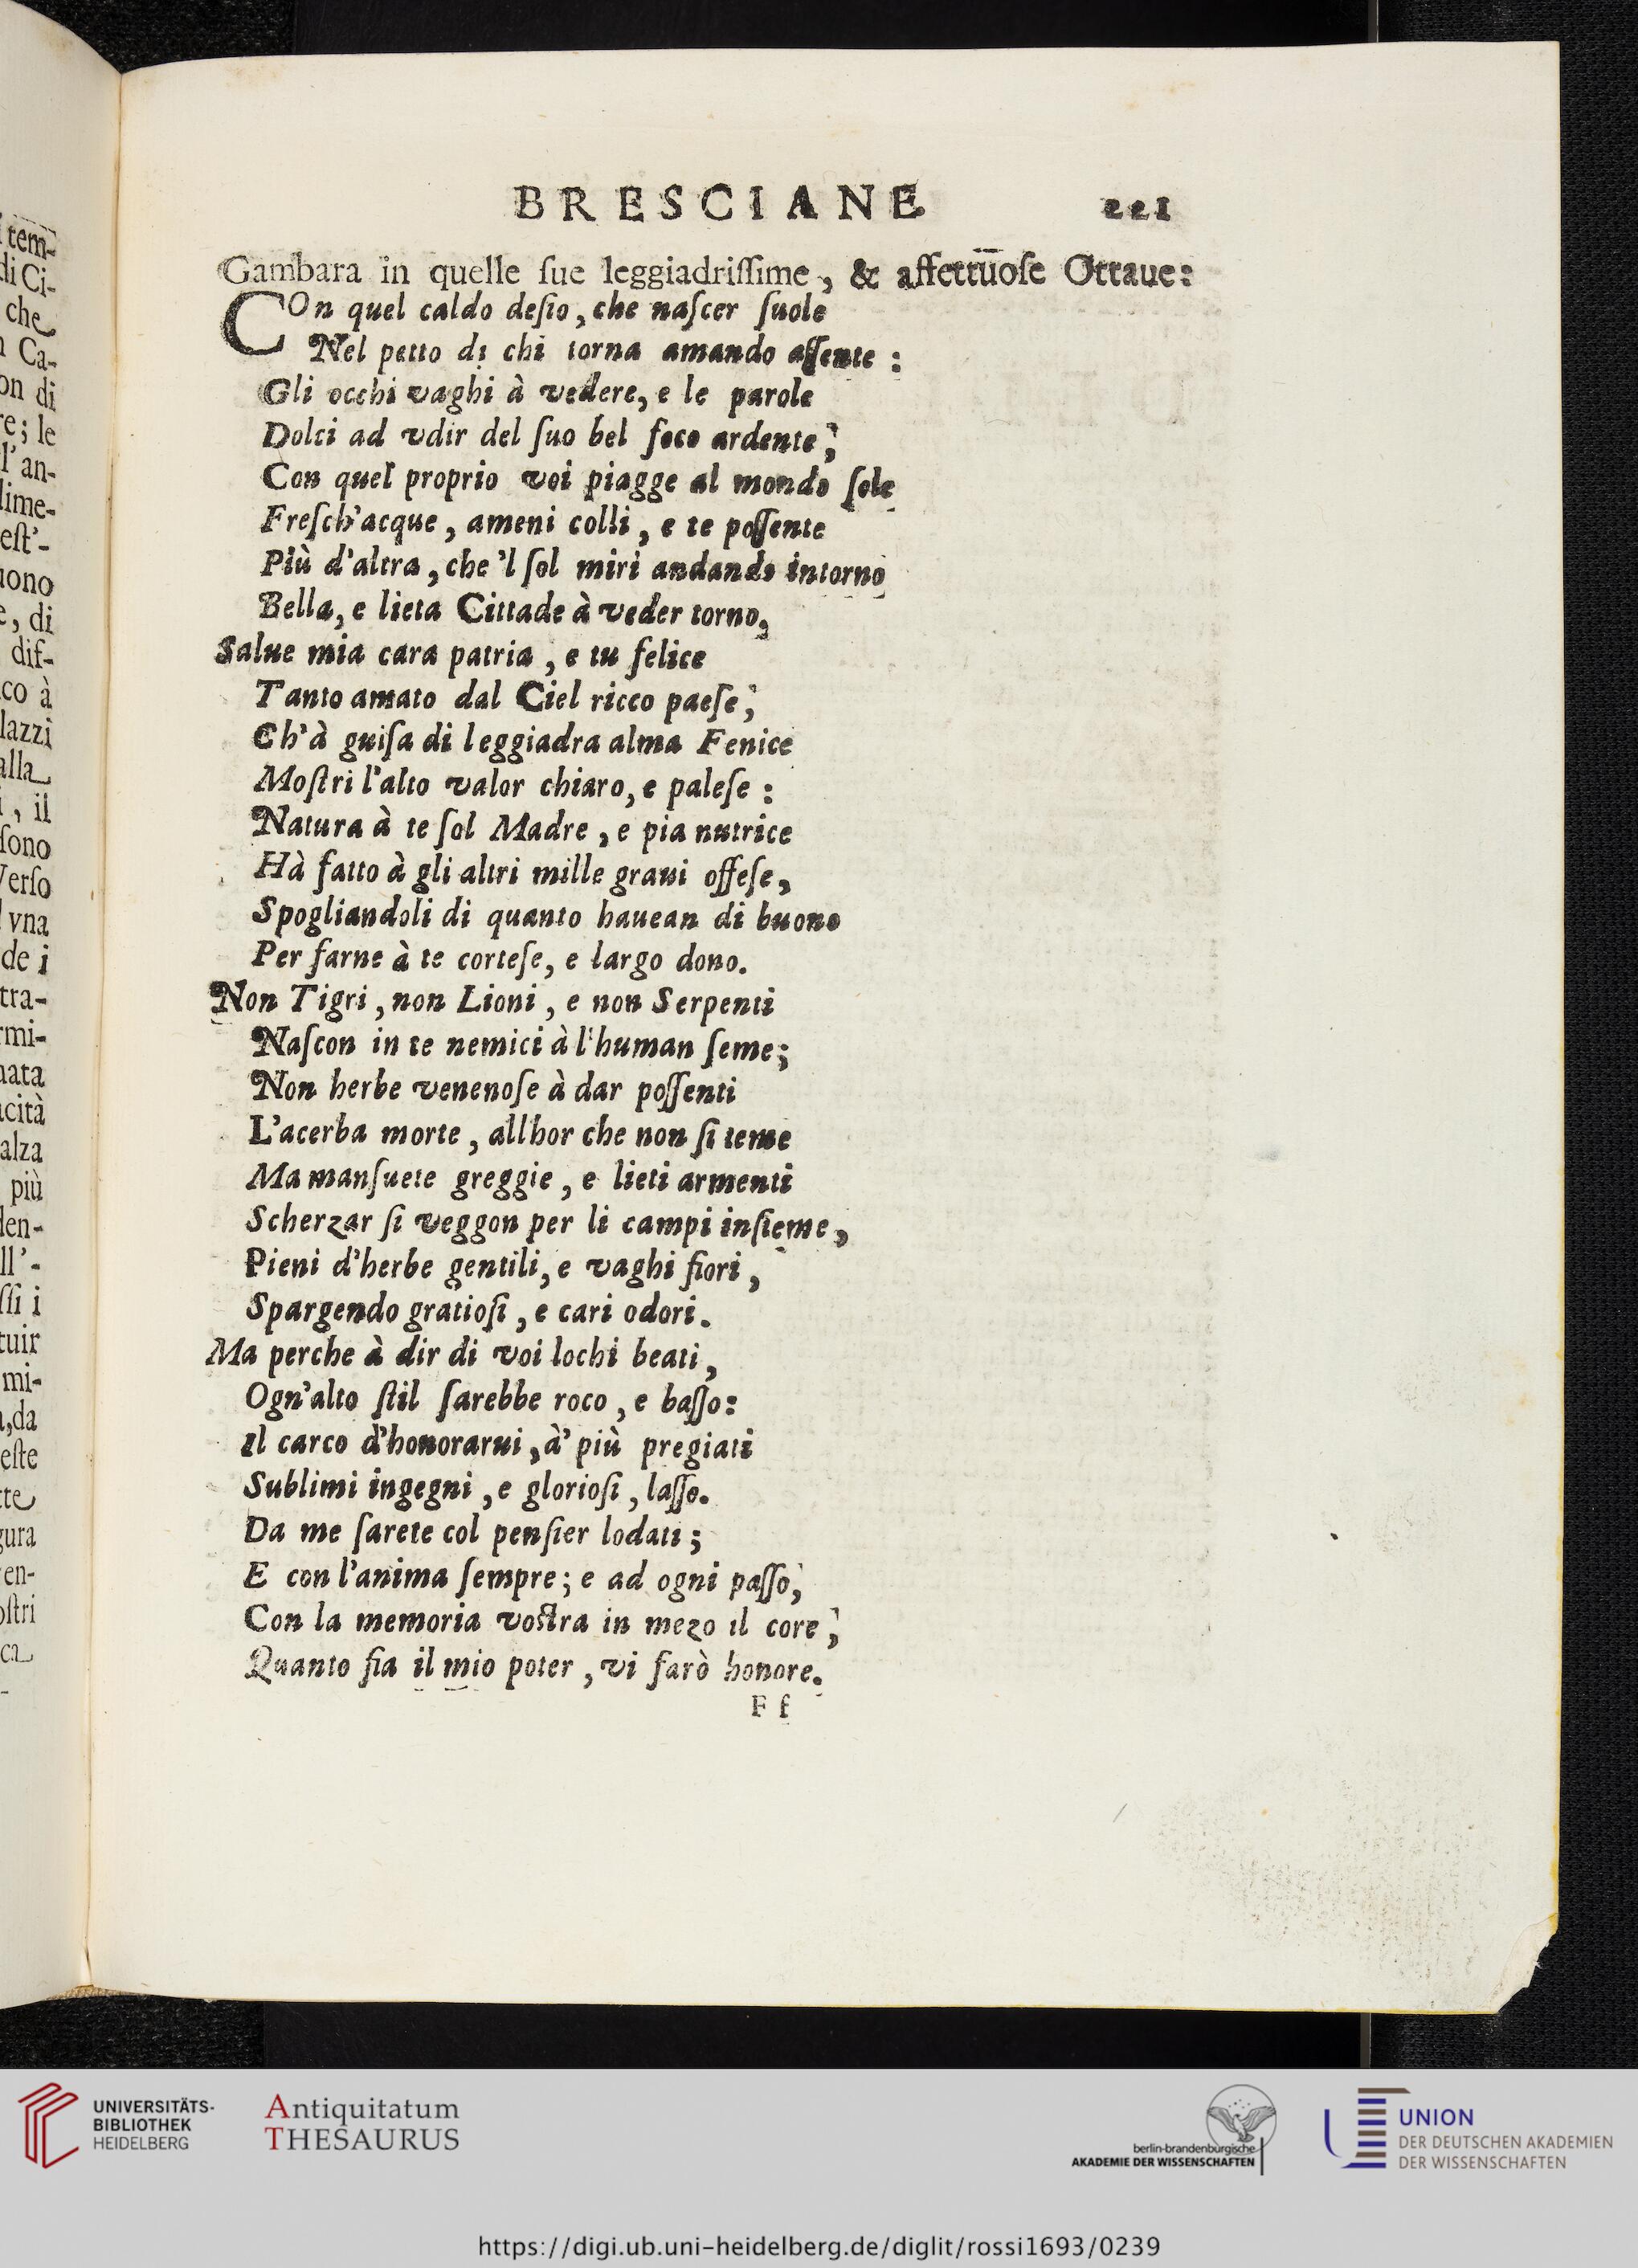 tem-
di Ci-
che
Ca-
on di
re; le
l'an-
lime-
eſt'-
uono
e, di
dif-
co à
lazzi
alla
i, il
ſono
Verſo
vna
de i
tra-
rmi-
nata
acità
alza
più
den-
ll'-
ſſi i
tuir
mi-
a,da
eſte
tte
gura
en-
oſtri
ca
BRESCIANE 221
Gambara in quelle ſue leggiadriſſime, & affettuoſe Ottaue:
COn quel caldo deſio, che naſcer ſuole
Nel petto di chi torna amando aſſente:
Gli occhi vaghi à vedere, e le parole
Dolci ad vdir del ſuo bel foco ardente;
Con quel proprio voi piagge al mondo ſole
Freſch'acque, ameni colli, e te poſſente
Più d'altra, che 'l ſol miri andando intorno
Bella, e lieta Cittade à veder torno,
Salue mia cara patria, e tu felice
Tanto amato dal Ciel ricco paeſe;
Ch'à guiſa di leggiadra alma Fenice
Moſtri l'alto valor chiaro, e paleſe:
Natura à te ſol Madre, e pia nutrice
Hà fatto à gli altri mille graui offeſe,
Spogliandoli di quanto hauean di buono
Per farne à te corteſe, e largo dono.
Non Tigri, non Lioni, e non Serpenti
Naſcon in te nemici à l'human ſeme;
Non herbe venenoſe à dar poſſenti
L'acerba morte, allhor che non ſi teme
Ma manſuete greggie, e lieti armenti
Scherzar ſi veggon per li campi inſieme,
Pieni d'herbe gentili, e vaghi fiori,
Spargendo gratioſi, e cari odori.
Ma perche à dir di voi lochi beati,
Ogn'alto ſtil ſarebbe roco, e baſſo:
Il carco d'honorarui, à' più pregiati
Sublimi ingegni, e glorioſi, laſſo.
Da me ſarete col penſier lodati;
E con l'anima ſempre; e ad ogni paſſo;
Con la memoria voſtra in mezo il core;
Quanto fia il mio poter, vi farò honore.
F f
UNIVERSITÄTS-
BIBLIOTHEK
HEIDELBERG
Antiquitatum
THESAURUS
berlin-brandenburgische
AKADEMIE DER WISSENSCHAFTEN
UNION
DER DEUTSCHEN AKADEMIEN
DER WISSENSCHAFTEN
https://digi.ub.uni-heidelberg.de/diglit/rossi1693/0239